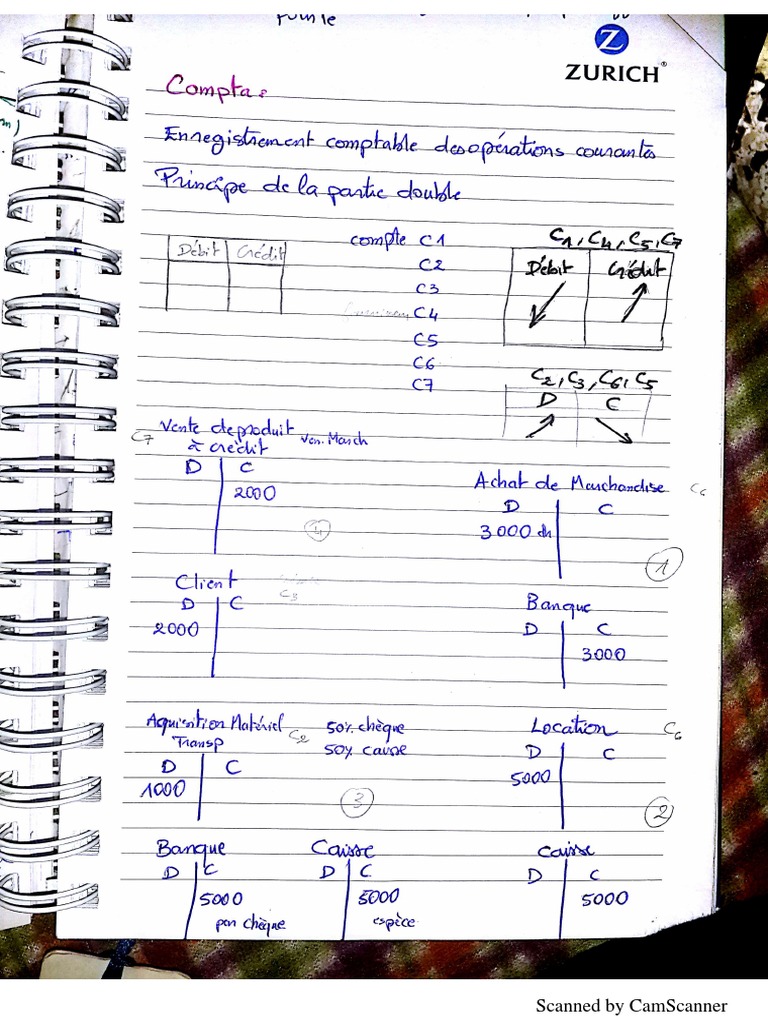 pour le
ZURICH
Compta :
Enregistrement comptable des opérations courantes
Principe de la partie double
Débit Crédit
compte C1
C2
C3
C4
C5
C6
C7
C1, C4, C5, C7
Débit Crédit
C2, C3, C6, C5
D C
C7 Vente de produit Ven. March
à crédit
D C
2000
4
Achat de Marchandise C6
D C
3000 dh
1
Client
C3
D C
2000
Banque
D C
3000
Acquisition Matériel 50% chèque
Transp C2 50% caisse
D C
1000
3
Location C6
D C
5000
2
Banque
D C
5000
par chèque
Caisse
D C
5000
espèce
Caisse
D C
5000
Scanned by CamScanner